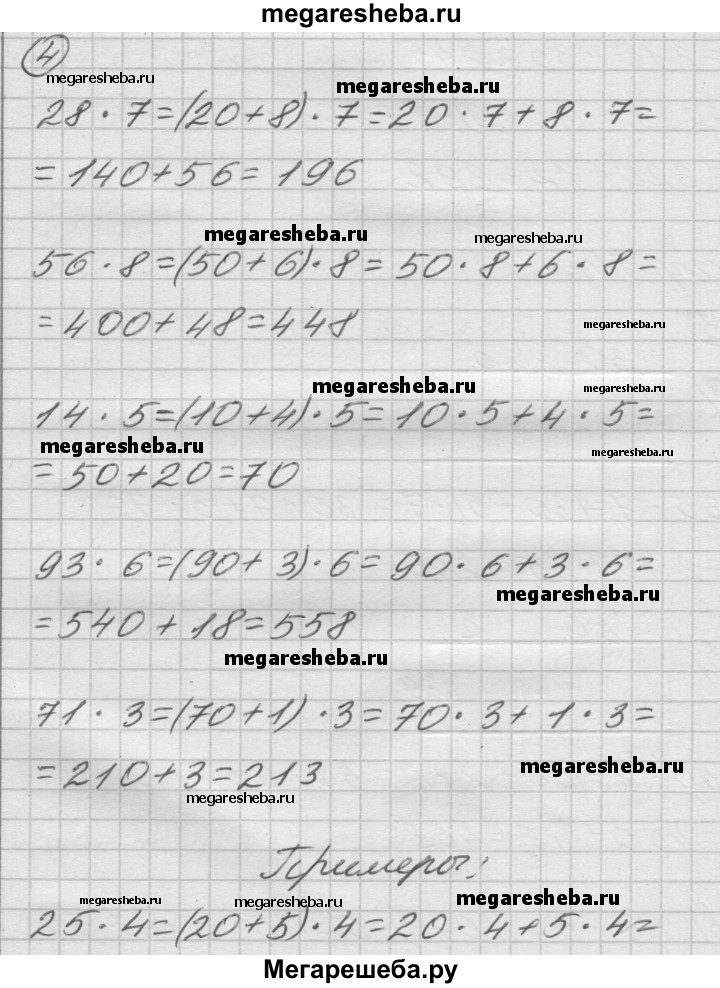 megaresheba.ru
4
megaresheba.ru
megaresheba.ru
28 · 7 = (20 + 8) · 7 = 20 · 7 + 8 · 7 =
= 140 + 56 = 196
megaresheba.ru
megaresheba.ru
56 · 8 = (50 + 6) · 8 = 50 · 8 + 6 · 8 =
= 400 + 48 = 448
megaresheba.ru
megaresheba.ru
megaresheba.ru
14 · 5 = (10 + 4) · 5 = 10 · 5 + 4 · 5 =
megaresheba.ru
megaresheba.ru
= 50 + 20 = 70
93 · 6 = (90 + 3) · 6 = 90 · 6 + 3 · 6 =
megaresheba.ru
= 540 + 18 = 558
megaresheba.ru
71 · 3 = (70 + 1) · 3 = 70 · 3 + 1 · 3 =
= 210 + 3 = 213
megaresheba.ru
megaresheba.ru
Примеры:
megaresheba.ru
megaresheba.ru
megaresheba.ru
25 · 4 = (20 + 5) · 4 = 20 · 4 + 5 · 4 =
Мегарешеба.ру